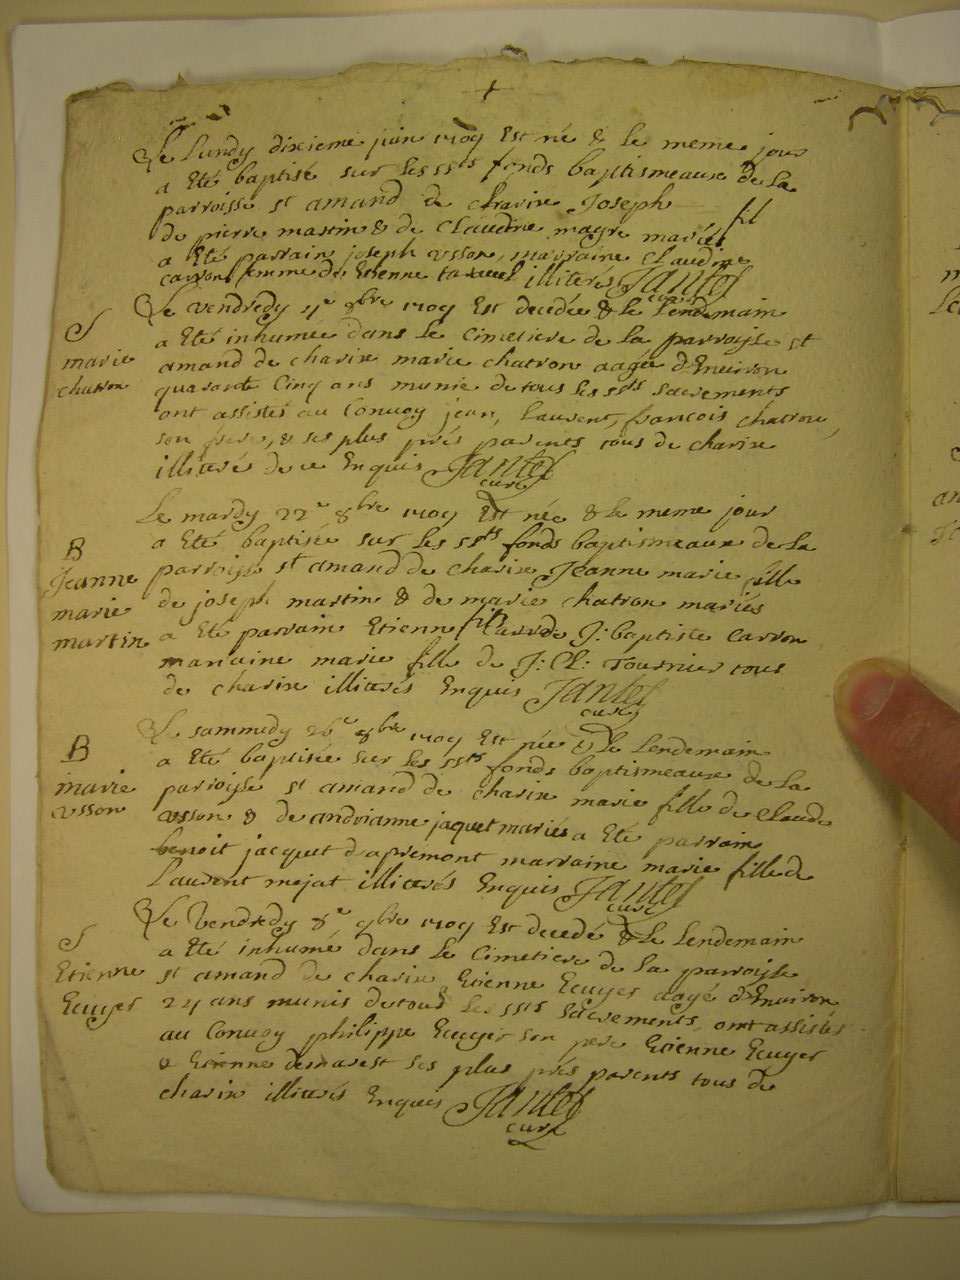 Le Lundy dixieme juin 1709 Est né & le meme jour
a Eté baptisé sur les ssts fonds baptismeaux de la
parroisse st amand de charix Joseph fil
de pierre martin & de Claudine magre mariés
a Eté parrain joseph usson, marraine Claudine
carron femme de Etienne illiterés Jantet
curé
Le vendredy 4e 8bre 1709 Est decedée & le Lendemain
S
a Eté inhumée dans le cimetiere de la parroisse st
marie
amand de charix marie chatron aagée d'Enuiron
chatron
quarante Cinq ans munie de tous les ssts sacrements
ont assistés au Conuoy jean, Laurent, francois chatron,
son frere, & ses plus prés parents tous de charix
illiterés de ce Enquis Jantet
curé
Le mardy 22e 8bre 1709 Est née & le meme jour
B
a Eté baptisée sur les ssts fonds baptismeaux de la
Jeanne
parroisse st amand de charix Jeanne marie fille
marie
de joseph martin & de marie chatron mariés
martin
a Eté parrain Etienne fils de J: baptiste Carron
marraine marie fille de J: Cl: Tournier tous
de charix illiterés Enquis Jantet
curé
Le sammedy 26e 8bre 1709 Est née & le Lendemain
B
a Eté baptisée sur les ssts fonds baptismeaux de la
marie
parroisse st amand de charix marie fille de Claude
usson
usson & de andrianne jaquet mariés a Eté parrain
benoit jacquet d'apremont marraine marie fille de
Laurent mejat illiterés Enquis Jantet
curé
Le Vendredy 8e 9bre 1709 Est decedé & le Lendemain
S
a Eté inhumé dans le Cimetiere de la parroisse
Etienne
st amand de charix Etienne Ecuyer aagé d'Enuiron
Ecuyer
24 ans munis de tous les ssts sacrements, ont assistés
au Conuoy philippe Ecuyer son pere Etienne Ecuyer
& Etienne demarest ses plus prés parents tous de
charix illiterés Enquis Jantet
curé